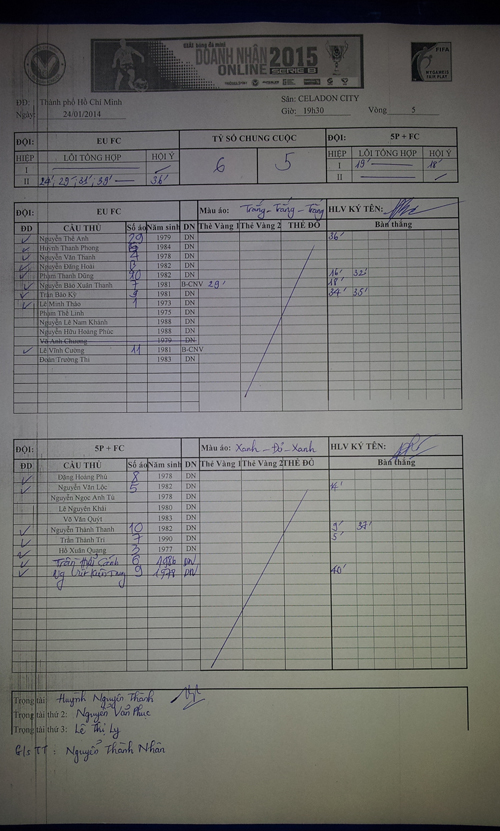 GIẢI BÓNG ĐÁ MINI
DOANH NHÂN 2015
ONLINE SERIE B
FIFA
ĐD: Thành phố Hồ Chí Minh
Sân: CELADON CITY
Ngày 24/01/2014
Giờ: 19h30 Vòng 5
ĐỘI: EU FC TỶ SỐ CHUNG CUỘC ĐỘI: 5P + FC
HIỆP LỖI TỔNG HỢP HỘI Ý 6 5 HIỆP LỖI TỔNG HỢP HỘI Ý
I I 19' 18'
II 24', 29', 31', 39' 36' II
ĐỘI: EU FC Màu áo: Trắng - Trắng - Trắng HLV KÝ TÊN:
ĐD CẦU THỦ Số áo Năm sinh DN Thẻ Vàng 1 Thẻ Vàng 2 THẺ ĐỎ Bàn thắng
Nguyễn Thế Anh 29 1979 DN 36'
Huỳnh Thanh Phong 1984 DN
Nguyễn Văn Thanh 4 1978 DN
Nguyễn Đăng Hoài 1982 DN
Phạm Thanh Dũng 10 1982 DN 16' 32'
Nguyễn Bảo Xuân Thanh 7 1981 B-CNV 29' 18'
Trần Bảo Kỳ 9 1981 DN 34' 35'
Lê Minh Thảo 1 1973 DN
Phạm Thế Linh 1975 DN
Nguyễn Lê Nam Khánh 1988 DN
Nguyễn Hữu Hoàng Phúc 1988 DN
Võ Anh Chương 1979 DN
Lê Vĩnh Cường 11 1981 B-CNV
Đoàn Trường Thi 1983 DN
ĐỘI: 5P + FC Màu áo: Xanh - Đỏ - Xanh HLV KÝ TÊN:
ĐD CẦU THỦ Số áo Năm sinh DN Thẻ Vàng 1 Thẻ Vàng 2 THẺ ĐỎ Bàn thắng
Đặng Hoàng Phú 8 1978 DN
Nguyễn Văn Lộc 5 1982 DN
Nguyễn Ngọc Anh Tú 1978 DN
Lê Nguyên Khải 1980 DN
Võ Văn Quýt 1983 DN
Nguyễn Thành Thanh 10 1982 DN 9' 37'
Trần Thành Trí 7 1990 DN 5'
Hồ Xuân Quang 3 1977 DN
Trần 6 1986 DN
Ng 9 1978 DN 40'
Trọng tài Huỳnh Nguyễn Thành
Trọng tài thứ 2: Nguyễn Văn Phúc
Trọng tài thứ 3: Lê Thi Ly
G/s TT : Nguyễn Thành Nhân